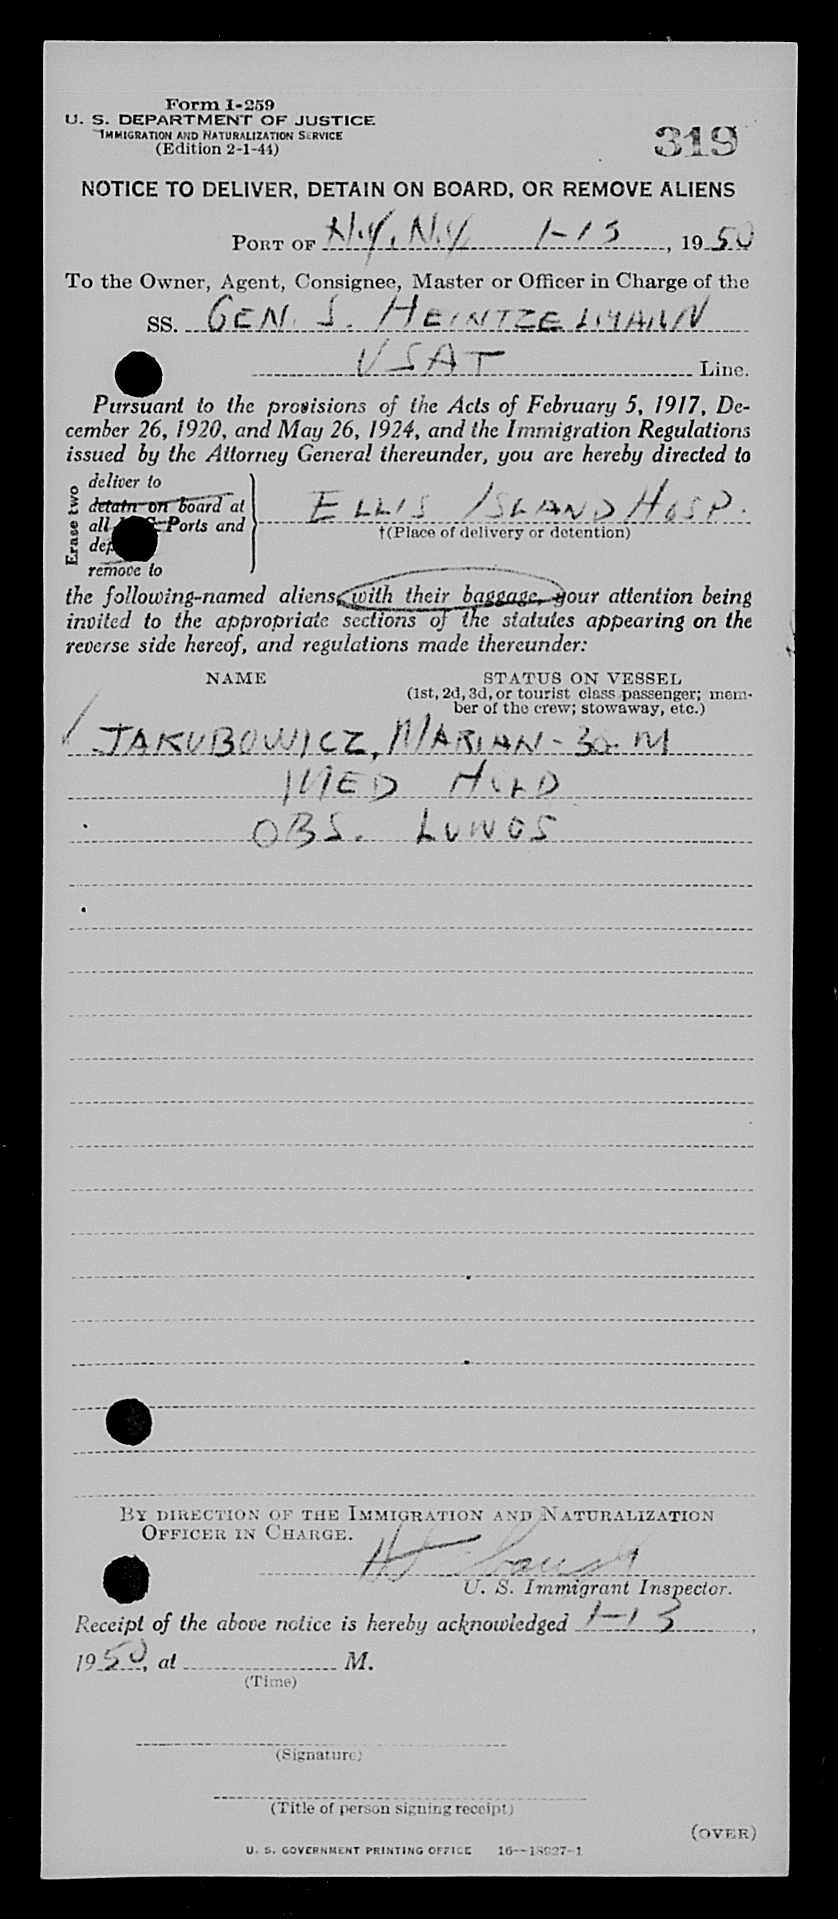 Form I-259
U. S. DEPARTMENT OF JUSTICE
IMMIGRATION AND NATURALIZATION SERVICE
(Edition 2-1-44)
319
NOTICE TO DELIVER, DETAIN ON BOARD, OR REMOVE ALIENS
PORT OF N.Y. N.Y. 1-13, 1950
To the Owner, Agent, Consignee, Master or Officer in Charge of the
SS. GEN. S. HEINTZELMANN
USAT Line.
Pursuant to the provisions of the Acts of February 5, 1917, De-
cember 26, 1920, and May 26, 1924, and the Immigration Regulations
issued by the Attorney General thereunder, you are hereby directed to
Erase two
deliver to
detain on board at
all Ports and
remove to
ELLIS ISLAND HOSP.
†(Place of delivery or detention)
the following-named aliens, with their baggage, your attention being
invited to the appropriate sections of the statutes appearing on the
reverse side hereof, and regulations made thereunder:
NAME
STATUS ON VESSEL
(1st, 2d, 3d, or tourist class passenger; mem-
ber of the crew; stowaway, etc.)
JAKUBOWICZ, MARIAN - 30. M
MED HOLD
OBS. LUNGS
BY DIRECTION OF THE IMMIGRATION AND NATURALIZATION
OFFICER IN CHARGE.
U. S. Immigrant Inspector.
Receipt of the above notice is hereby acknowledged 1-13,
1950, at M.
(Time)
(Signature)
(Title of person signing receipt)
(OVER)
U. S. GOVERNMENT PRINTING OFFICE 16--18027-1